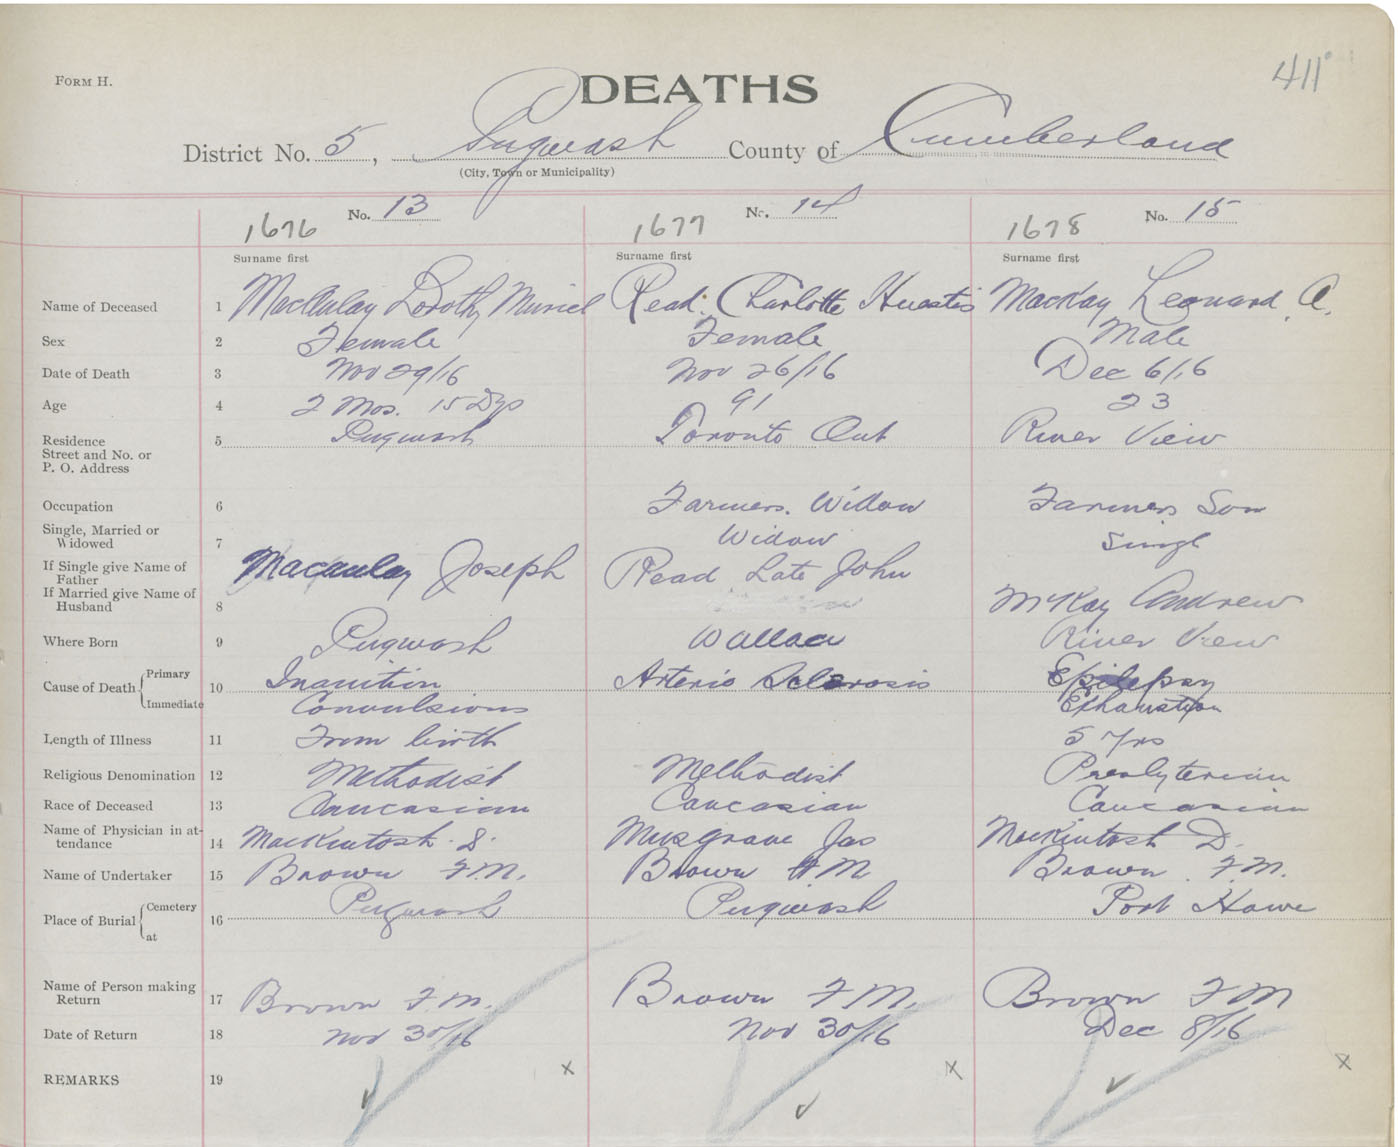 FORM H.
DEATHS
411
District No. 5, Pugwash County of Cumberland
(City, Town or Municipality)
1676 No. 13 1677 No. 14 1678 No. 15
Surname first Surname first Surname first
Name of Deceased 1 MacAulay Dorothy Muriel Read. Charlotte Huestis MacKay Leonard. A.
Sex 2 Female Female Male
Date of Death 3 Nov 29/16 Nov 26/16 Dec 6/16
Age 4 2 Mos. 15 Dys 91 23
Residence 5 Pugwash Toronto Ont River View
Street and No. or
P. O. Address
Occupation 6 Farmers. Widow Farmers Son
Single, Married or
Widowed 7 Widow Singl
If Single give Name of
Father Macaulay Joseph Read Late John
If Married give Name of
Husband 8 McKay Andrew
Where Born 9 Pugwash Wallace River View
Cause of Death Primary 10 Inanition Arterio Sclerosis Epilepsy
Immediate Convulsions Exhaustion
Length of Illness 11 From birth 5 Yrs
Religious Denomination 12 Methodist Methodist Presbyterian
Race of Deceased 13 Caucasian Caucasian Caucasian
Name of Physician in at-
tendance 14 MacKintosh. D. Musgrave Jas MacKintosh D.
Name of Undertaker 15 Brown F.M. Brown FM Brown. F.M.
Place of Burial Cemetery at 16 Pugwash Pugwash Port Howe
Name of Person making
Return 17 Brown F.M. Brown F.M. Brown F M
Date of Return 18 Nov 30/16 Nov 30/16 Dec 8/16
REMARKS 19 x x x